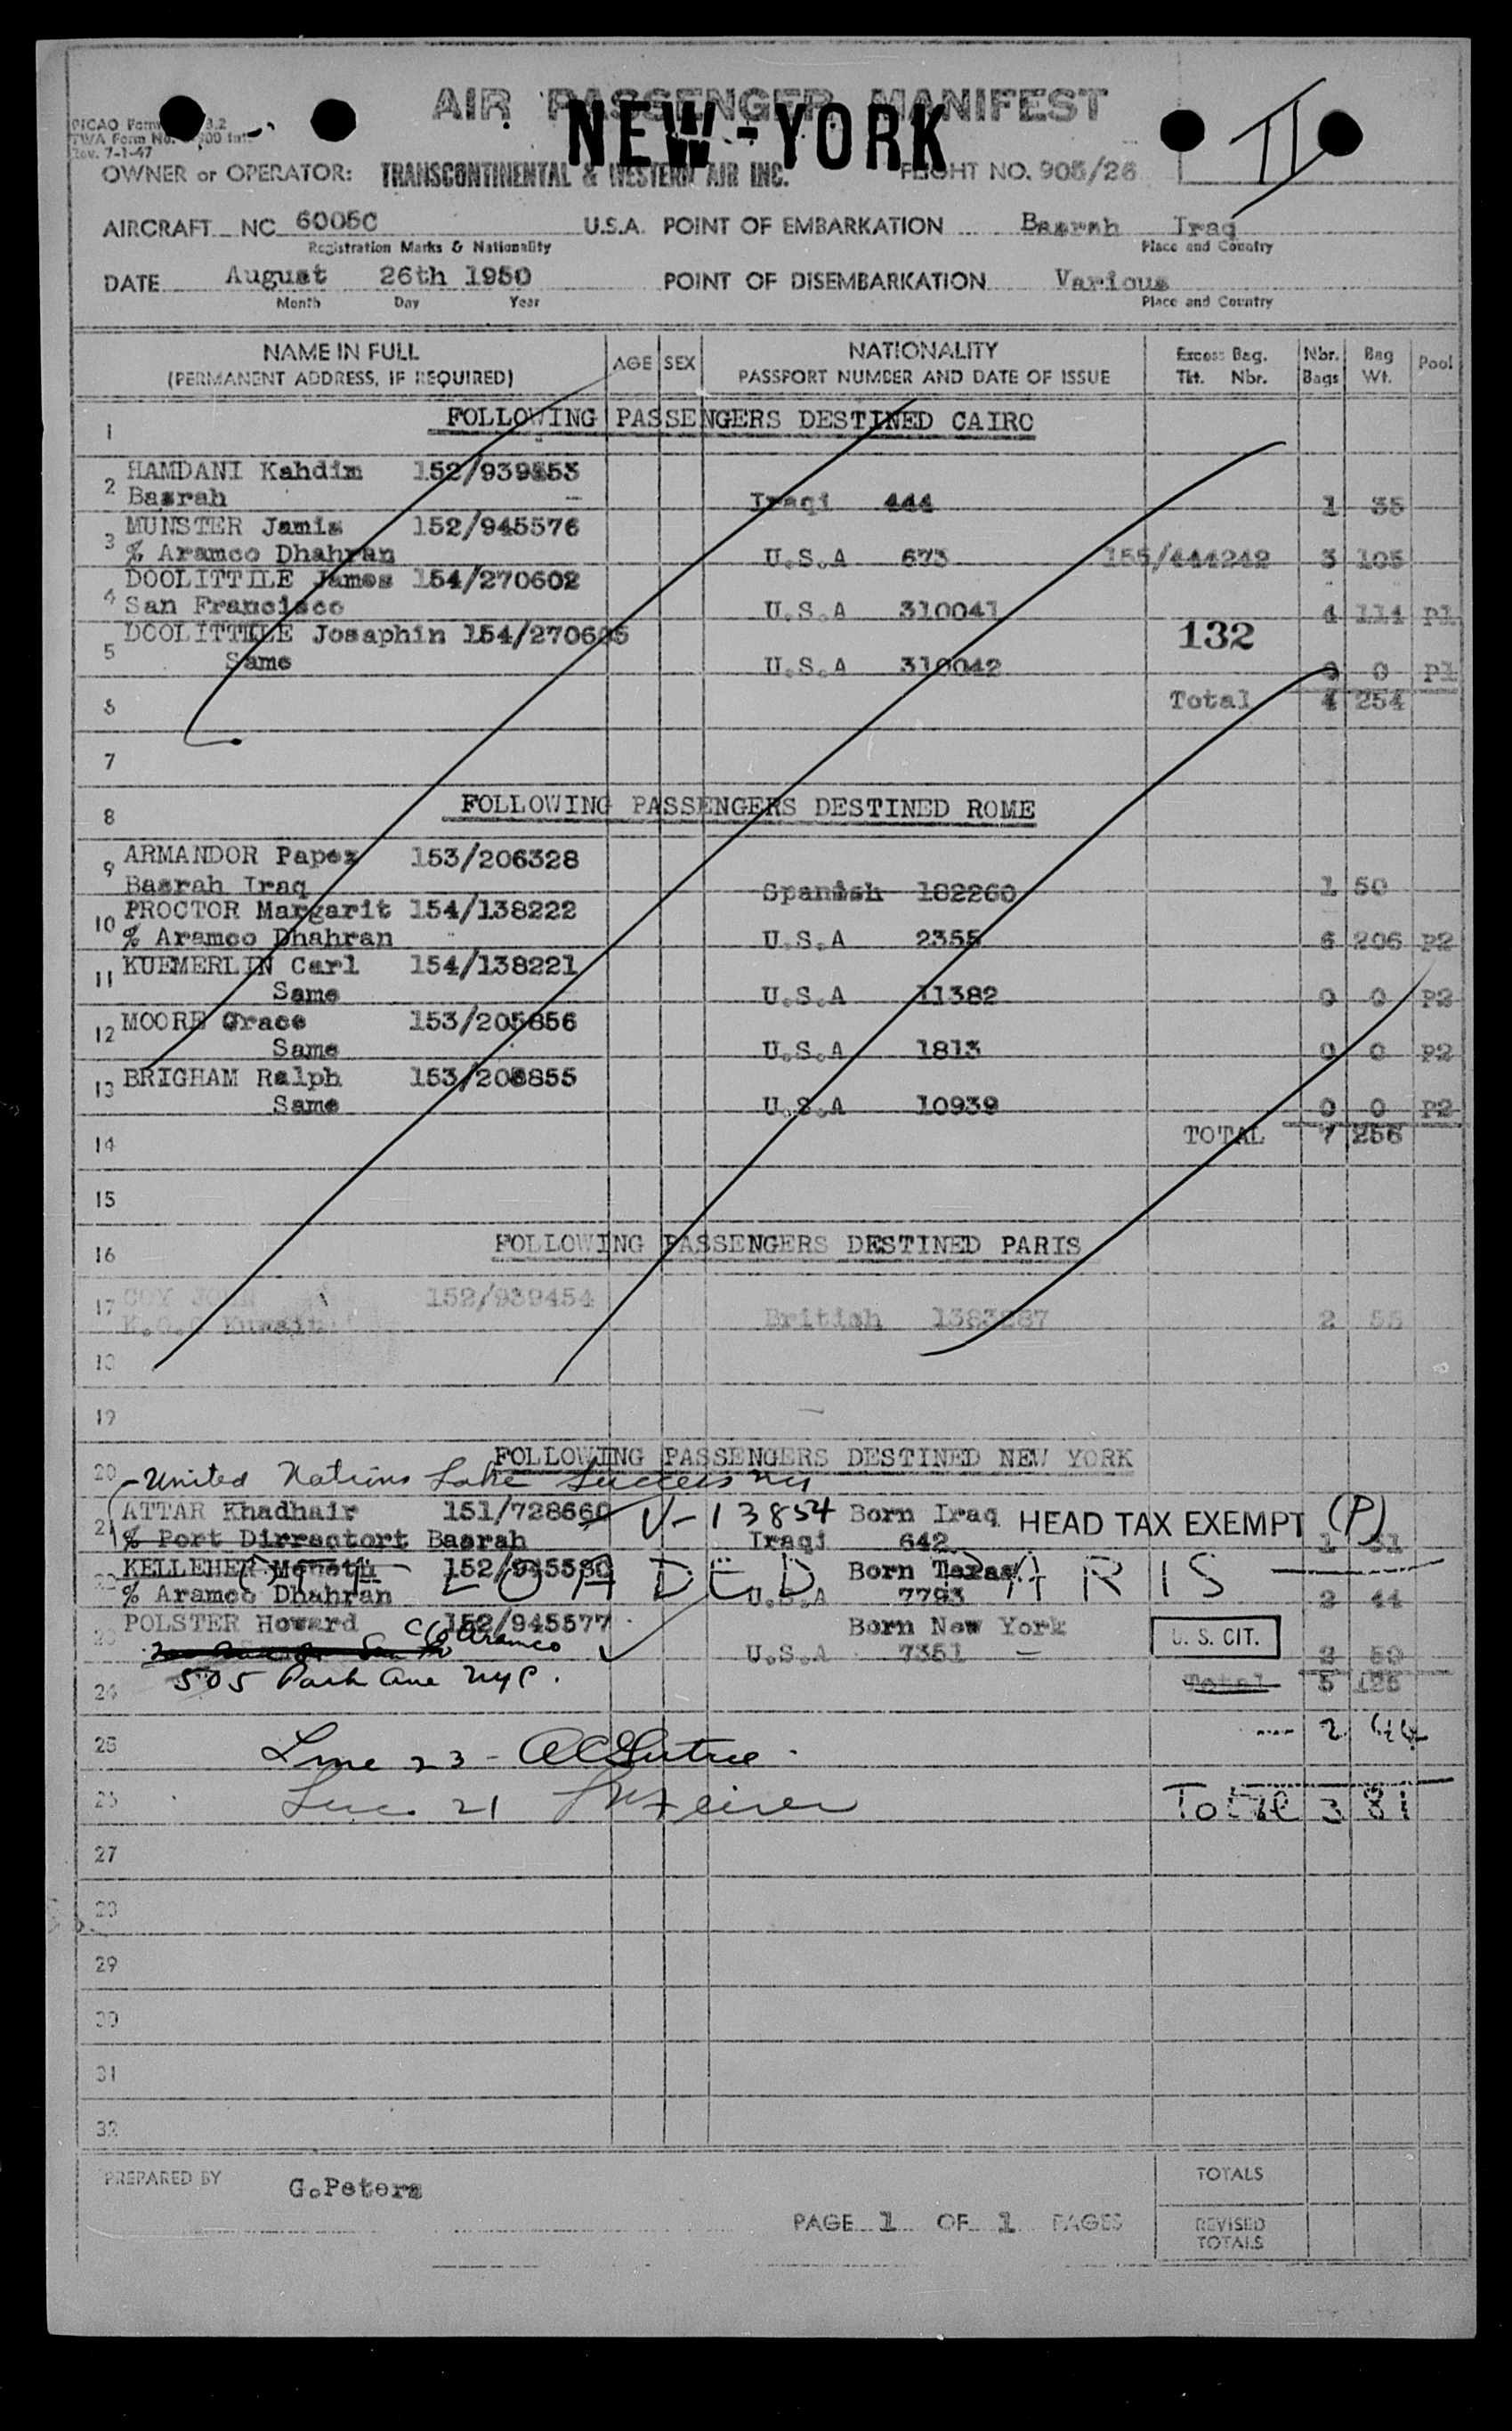 AIR PASSENGER MANIFEST
NEW-YORK
II
ICAO Form 3.2
TWA Form No. 
Rev. 7-1-47
OWNER or OPERATOR: TRANSCONTINENTAL & WESTERN AIR INC. FLIGHT NO. 905/26
AIRCRAFT NC 6005C U.S.A. POINT OF EMBARKATION Basrah Iraq
Registration Marks & Nationality Place and Country
DATE August 26th 1950 POINT OF DISEMBARKATION Various
Month Day Year Place and Country
NAME IN FULL AGE SEX NATIONALITY Excess Bag. Nbr. Bag Pool
(PERMANENT ADDRESS, IF REQUIRED) PASSPORT NUMBER AND DATE OF ISSUE Tkt. Nbr. Bags Wt.
1 FOLLOWING PASSENGERS DESTINED CAIRO
2 HAMDANI Kahdim 152/939453
Basrah Iraqi 444 1 35
3 MUNSTER Jamis 152/945576
% Aramco Dhahran U.S.A 673 155/444242 3 105
4 DOOLITTILE James 154/270602
San Francisco U.S.A 310041 4 114 P1
5 DOOLITTILE Josaphin 154/270605 132
Same U.S.A 310042 0 0 P1
6 Total 4 254
7
8 FOLLOWING PASSENGERS DESTINED ROME
9 ARMANDOR Papez 153/206328
Basrah Iraq Spanish 182260 1 50
10 PROCTOR Margarit 154/138222
% Aramco Dhahran U.S.A 2355 6 206 P2
11 KUEMERLIN Carl 154/138221
Same U.S.A 11382 0 0 P2
12 MOORE Grace 153/205856
Same U.S.A 1813 0 0 P2
13 BRIGHAM Ralph 153/205855
Same U.S.A 10939 0 0 P2
14 TOTAL 7 256
15
16 FOLLOWING PASSENGERS DESTINED PARIS
17 COY JOHN 152/939454
K.O.C Kuwait British 1383287 2 55
18
19
20 FOLLOWING PASSENGERS DESTINED NEW YORK
United Nations Lake Success NY
21 ATTAR Khadhair 151/728660 V-13854 Born Iraq HEAD TAX EXEMPT (P)
% Port Dirrectort Basrah Iraqi 642 1 31
22 KELLEHER 152/945580 Born Texas
OFF LOADED PARIS
% Aramco Dhahran U.S.A 7793 2 44
23 POLSTER Howard 152/945577 Born New York U. S. CIT.
c/o Aramco U.S.A 7351 2 50
24 505 Park Ave NYC. Total 5 125
25 Line 23 - 2 44
26 Line 21 Total 3 81
27
28
29
30
31
32
PREPARED BY G.Peters TOTALS
PAGE 1 OF 1 PAGES REVISED
TOTALS